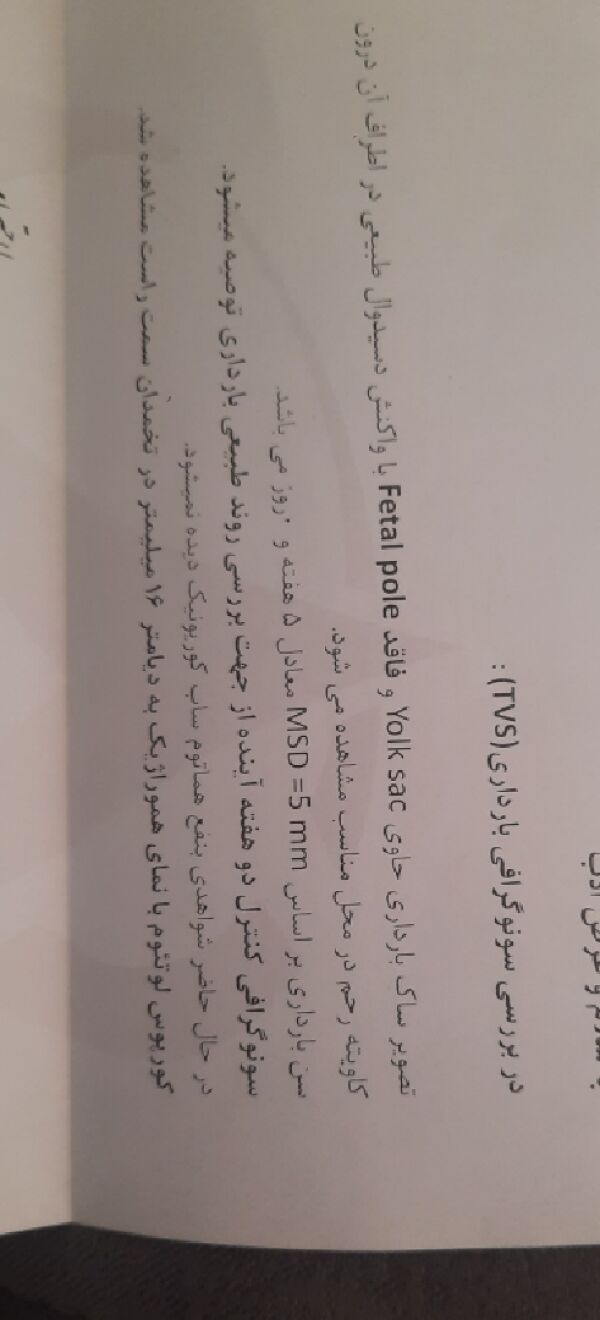 با سلام و عرض ادب
در بررسی سونوگرافی بارداری(TVS) :
تصویر ساک بارداری حاوی Yolk sac و فاقد Fetal pole با واکنش دسیدوال طبیعی در اطراف آن درون
کاویته رحم در محل مناسب مشاهده می شود.
سن بارداری بر اساس MSD =5 mm معادل ۵ هفته و ۰روز می باشد.
سونوگرافی کنترل دو هفته آینده از جهت بررسی روند طبیعی بارداری توصیه میشود.
در حال حاضر شواهدی بنفع هماتوم ساب کوریونیک دیده نمیشود.
کورپوس لوتئوم با نمای هموراژیک به دیامتر ۱۶ میلیمتر در تخمدان سمت راست مشاهده شد.